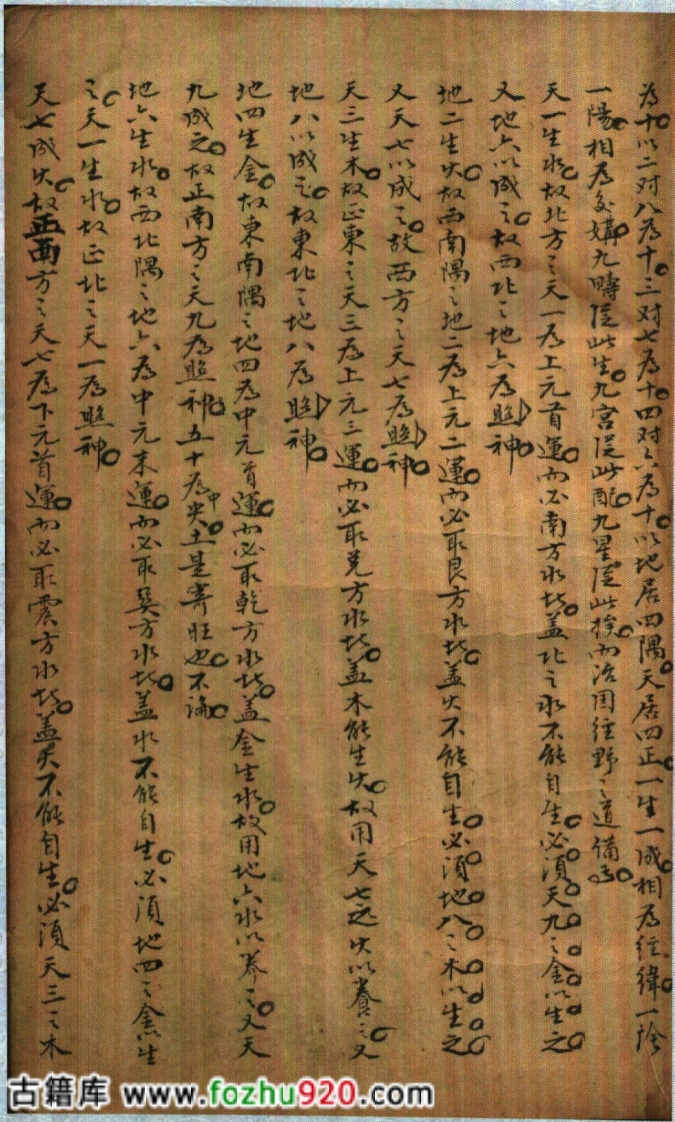 為十以二对八為十三对七為十四对六為十以地居四隅天居四正一生一成相為經緯一陰
一陽相為交媾九疇從此生九宮從此配九星從此挨而治国經野之道備
天一生水故北方之天一為上元首運而必南方水若盖北之水不能自生必須天九之金以生之
又地六以成之故西北之地六為照神
地二生火故西南隅之地二為上元二運而必取艮方水若盖火不能自生必須地八之木以生之
又天七以成之故西方之天七為照神
天三生木故正東之天三為上元三運而必取兑方水若盖木能生火故用天七之火以養之又
地八以成之故東北之地八為照神
地四生金故東南隅之地四為中元首運而必取乾方水若盖金生水故用地六水以养之又天
九成之故正南方之天九為照神五十為中央土是寄旺也不論
地六生水故西北隅之地六為中元末運而必取巽方水若盖水不能自生必須地四之金以生
之天一生水故正北之天一為照神
天七成火故正西方之天七為下元首運而必取震方水若盖火不能自生必須天三之木
古籍库 www.fozhu920.com